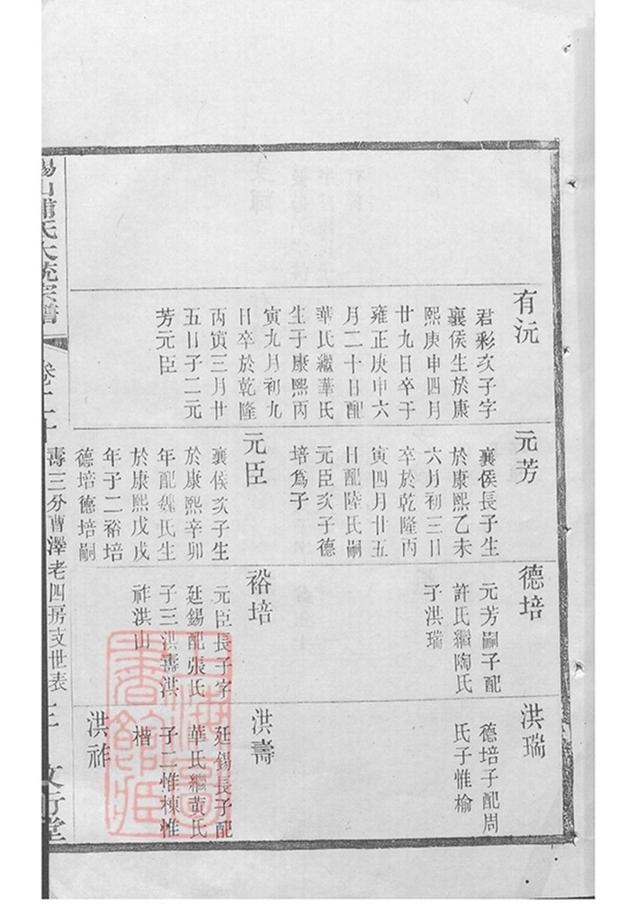 有沅
君彩次子字
襄侯生於康
熙庚申四月
廿九日卒于
雍正庚申六
月二十日配
華氏繼華氏
生于康熙丙
寅九月初九
日卒於乾隆
丙寅三月廿
五日子二元
芳元臣
元芳
襄侯長子生
於康熙乙未
六月初三日
卒於乾隆丙
寅四月廿五
日配陸氏嗣
元臣次子德
培為子
元臣
襄侯次子生
於康熙辛卯
年配魏氏生
於康熙戊戌
年子二裕培
德培德培嗣
德培
元芳嗣子配
許氏繼陶氏
子洪瑞
裕培
元臣長子字
延錫配張氏
子三洪壽洪
祚洪山
洪瑞
德培子配周
氏子惟榆
洪壽
延錫長子配
華氏繼黄氏
子二惟棟惟
槽
洪祚
錫山浦氏大統宗譜
壽三分曹澤老四房支世表